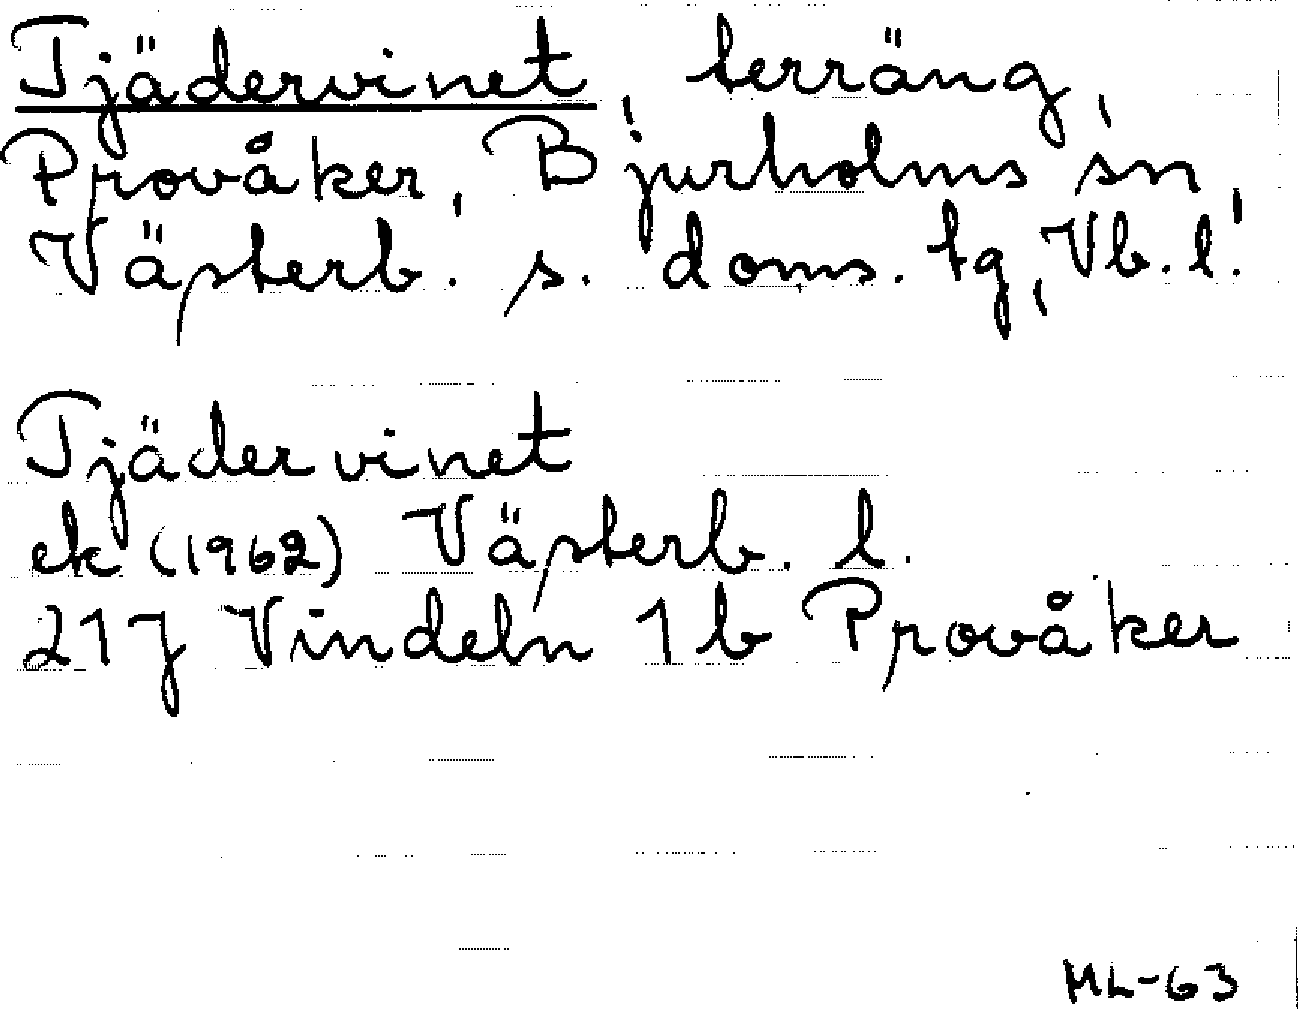 Tjädervinet, terräng,
Provåker, Bjurholms sn,
Västerb. s. doms. tg, Vb. l.
Tjädervinet
ek (1962) Västerb. l.
21J Vindeln 1b Provåker
ML-63